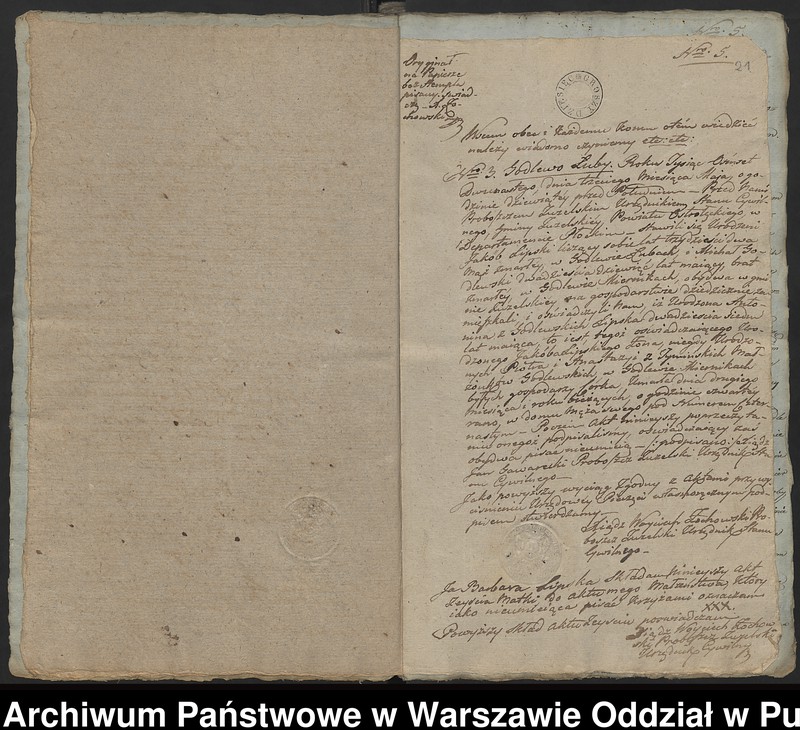 Nro 5.
Nro 5.
21
Oryginał
na Papierze
bez stempla
pisany, świad-
czę X. Żo-
chowski
DZIESIĘĆ GROSZY
Wszem obec i każdemu komu o tém wiedzieć
należy wiadomo czyniemy etc: etc:
Nro 3. Godlewo Łuby. Roku Tysiąc Osmset
Dwunastego, dnia trzeciego Miesiąca Maja, o go-
dzinie dziewiątey przed Południem – Przed Nami
Proboszczem Zuzelskim Urzędnikiem Stanu Cywil-
nego, Gminy Zuzelskiey, Powiatu Ostrołęckiego, w
Departamencie Płockim – stawili się Urodzeni
Jakób Lipski liczący sobie lat trzydzieści dwa
Mąż zmarłey, w Godlewie Łubach, i Michał Go-
dlewski dwadzieścia dziewięć lat maiący, brat
zmarłey, w Godlewie Miernikach, obydwa w gmi-
nie Zuzelskiey na gospodarstwie dziedzicznie za-
mieszkali, i oświadczyli Nam, iż Urodzona Anto-
nina z Godlewskich Lipska dwadzieścia siedm
lat maiąca, to iest tegoż oświadczaiącego Uro-
dzonego Jakóba Lipskiego żona, niegdy Urodzo-
nych Piotra i Anastazyi z Tymińskich Mał-
żonków Godlewskich, w Godlewie Miernikach
byłych gospodarzy córka, zmarła dnia drugiego
miesiąca i roku bieżących, o godzinie czwartey
zrana, w domu męża swego pod Numerem czter-
nastym – Poczem Akt ninieyszy poprzeczyta-
niu onegoż podpisaliśmy, oświadczaiący zaś
obydwa pisać nieumieią – /:podpisano:/ Xiądz
Jan Gawarecki Proboszcz Zuzelski Urzędnik Sta-
nu Cywilnego –
Jako powyższy wyciąg zgodny z Aktami przy wy-
ciśnieniu Urzędowey Pieczęci własnoręcznym pod-
pisem stwierdzamy –
Xiądz Woyciech Żochowski Pro-
boszcz Zuzelski Urzędnik Stanu
Cywilnego –
Ja Barbara Lipska składam ninieyszy Akt
Zeyścia Matki do aktu mego Małżeństwa, który
iako nieumieiąca pisać krzyżami oznaczam
XXX.
Powyższy skład aktu Zeyścia poświadczam
Xiądz Woyciech Żochow-
ski Proboszcz Zuzelski
Urzędnik Cywilny
Archiwum Państwowe w Warszawie Oddział w Pu